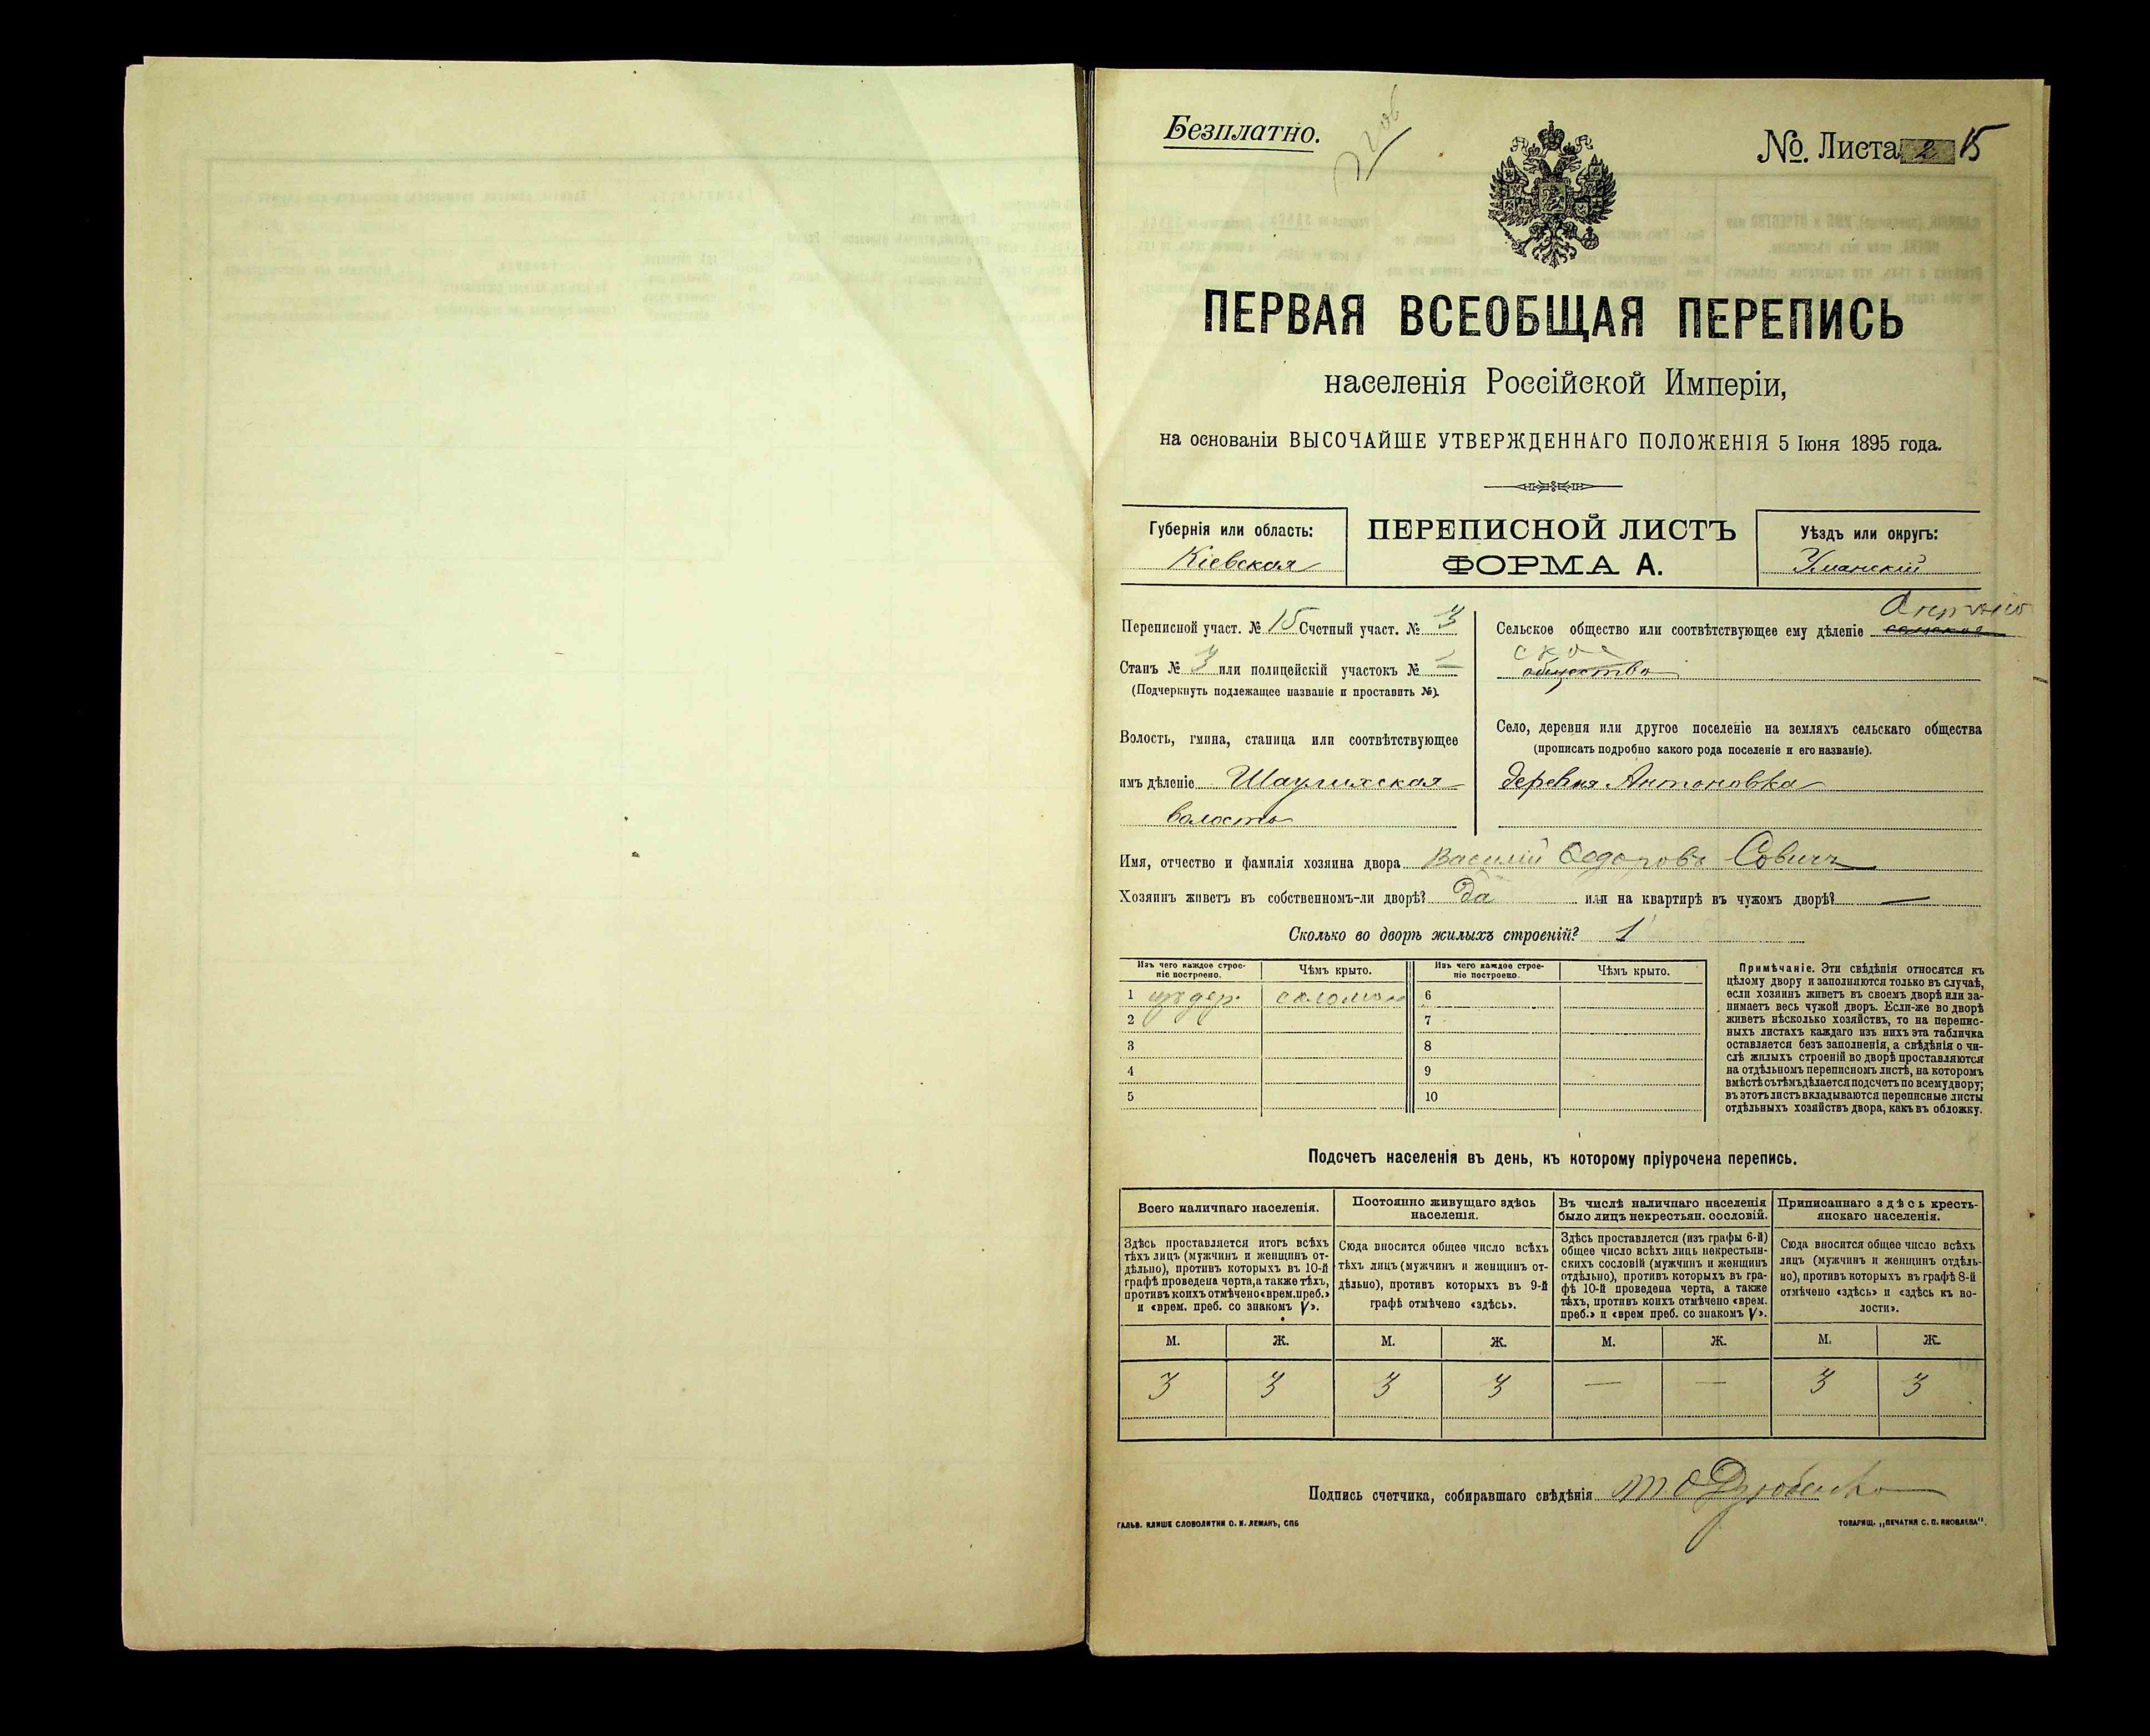 Безплатно.
№. Листа 2 15
ПЕРВАЯ ВСЕОБЩАЯ ПЕРЕПИСЬ
населенія Россійской Имперіи,
на основаніи ВЫСОЧАЙШЕ УТВЕРЖДЕННАГО ПОЛОЖЕНІЯ 5 Іюня 1895 года.
Губернія или область:
Кіевская
ПЕРЕПИСНОЙ ЛИСТЪ
ФОРМА А.
Уѣздъ или округъ:
Уманскій
Переписной участ. № 15 Счетный участ. № 3
Станъ № 3 или полицейскій участокъ № —
(Подчеркнуть подлежащее названіе и проставить №).
Волость, гмина, станица или соотвѣтствующее
имъ дѣленіе Шаулихская
волость
Сельское общество или соотвѣтствующее ему дѣленіе сельское
ское
общество
Село, деревня или другое поселеніе на земляхъ сельскаго общества
(прописать подробно какого рода поселеніе и его названіе).
деревня Антоновка
Имя, отчество и фамилія хозяина двора Василій Ѳедоровъ Совичъ
Хозяинъ живетъ въ собственномъ-ли дворѣ? Да или на квартирѣ въ чужомъ дворѣ? —
Сколько во дворѣ жилыхъ строеній? 1
Изъ чего каждое строе-
ніе построено.
Чѣмъ крыто.
Изъ чего каждое строе-
ніе построено.
Чѣмъ крыто.
1 дер. солом 6
2 7
3 8
4 9
5 10
Примѣчаніе. Эти свѣдѣнія относятся къ
цѣлому двору и заполняются только въ случаѣ,
если хозяинъ живетъ въ своемъ дворѣ или за-
нимаетъ весь чужой дворъ. Если-же во дворѣ
живетъ нѣсколько хозяйствъ, то на перепис-
ныхъ листахъ каждаго изъ нихъ эта табличка
оставляется безъ заполненія, а свѣдѣнія о чи-
слѣ жилыхъ строеній во дворѣ проставляются
на отдѣльномъ переписномъ листѣ, на которомъ
вмѣстѣ съ тѣмъ дѣлается подсчетъ по всему двору;
въ этотъ листъ вкладываются переписные листы
отдѣльныхъ хозяйствъ двора, какъ въ обложку.
Подсчетъ населенія въ день, къ которому пріурочена перепись.
Всего наличнаго населенія.
Здѣсь проставляется итогъ всѣхъ
тѣхъ лицъ (мужчинъ и женщинъ от-
дѣльно), противъ которыхъ въ 10-й
графѣ проведена черта, а также тѣхъ,
противъ коихъ отмѣчено «врем. преб.»
и «врем. преб. со знакомъ V».
Постоянно живущаго здѣсь
населенія.
Сюда вносится общее число всѣхъ
тѣхъ лицъ (мужчинъ и женщинъ от-
дѣльно), противъ которыхъ въ 9-й
графѣ отмѣчено «здѣсь».
Въ числѣ наличнаго населенія
было лицъ некрестьян. сословій.
Здѣсь проставляется (изъ графы 6-й)
общее число всѣхъ лицъ некрестьян-
скихъ сословій (мужчинъ и женщинъ
отдѣльно), противъ которыхъ въ гра-
фѣ 10-й проведена черта, а также
тѣхъ, противъ коихъ отмѣчено «врем.
преб.» и «врем преб. со знакомъ V».
Приписаннаго здѣсь кресть-
янскаго населенія.
Сюда вносится общее число всѣхъ
лицъ (мужчинъ и женщинъ отдѣль-
но), противъ которыхъ въ графѣ 8-й
отмѣчено «здѣсь» и «здѣсь къ во-
лости».
М. Ж. М. Ж. М. Ж. М. Ж.
3 3 3 3 — — 3 3
Подпись счетчика, собиравшаго свѣдѣнія
ГАЛЬВ. КЛИШЕ СЛОВОЛИТНИ О. И. ЛЕМАНЪ, СПБ
ТОВАРИЩ. „ПЕЧАТНЯ С. П. ЯКОВЛЕВА".